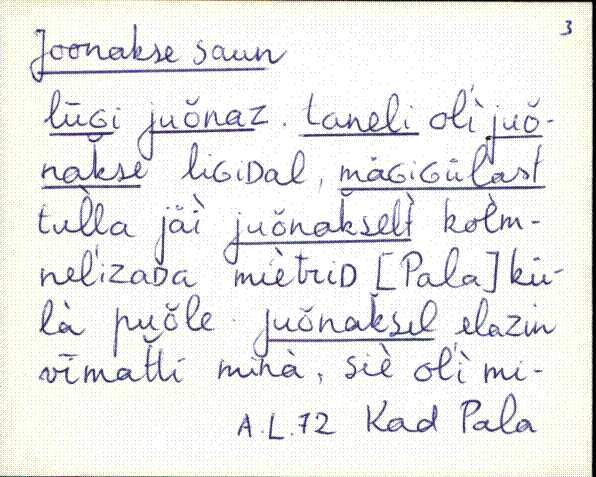 3
Joonakse saun
lūGi juŏnaz. taneli olì juŏ-
nak̆se liGiDal, mäGiGülast
tul̀la jäì juŏnak̆selt kol̀m-
nel'izaDa miètriD [Pala] kü-
là puŏle. juŏnak̆sel elazin
vīmat̆ti minà, siè ol'ì mi-
A.L.72 Kad Pala